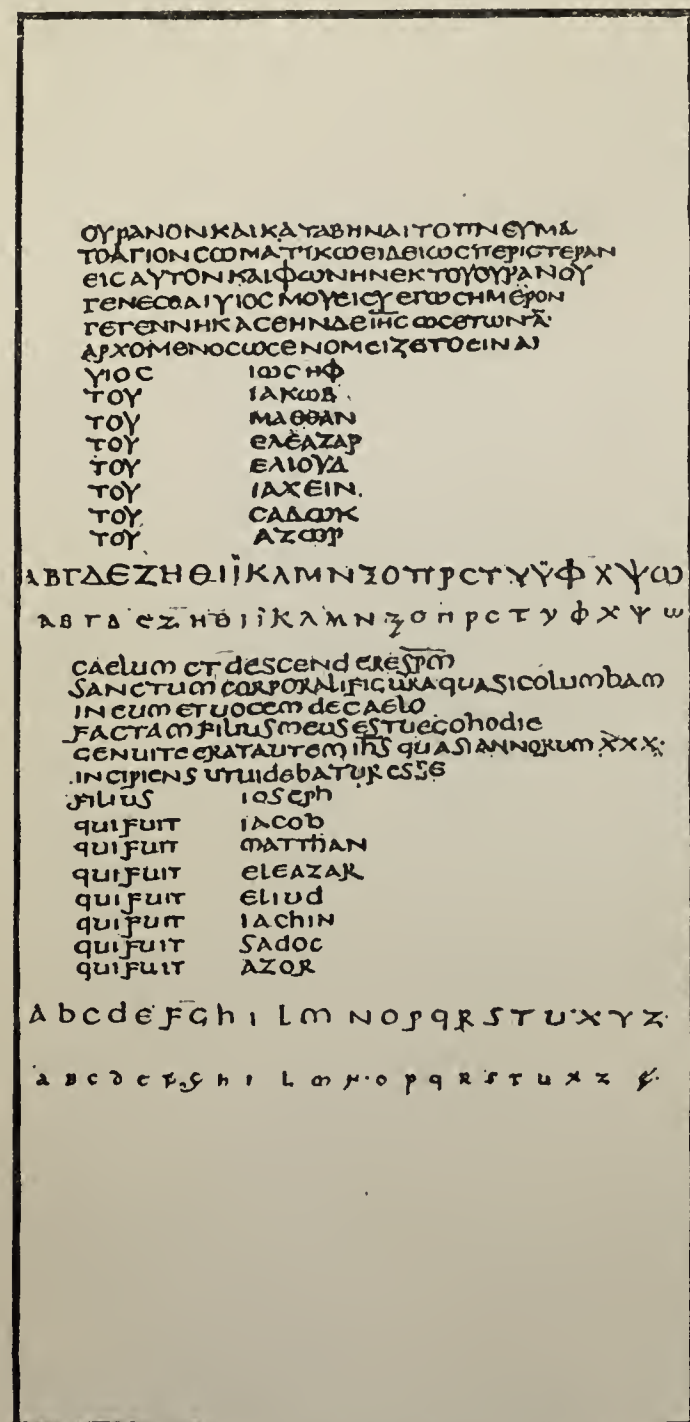 ΟΥΡΑΝΟΝΚΑΙΚΑΤΑΒΗΝΑΙΤΟΠΝΕΥΜΑ
ΤΟΑΓΙΟΝϹΩΜΑΤΙΚΩΕΙΔΕΙΩϹΠΕΡΙϹΤΕΡΑΝ
ΕΙϹΑΥΤΟΝΚΑΙΦΩΝΗΝΕΚΤΟΥΟΥΡΑΝΟΥ
ΓΕΝΕϹΘΑΙΥΙΟϹΜΟΥΕΙϹΥΕΓΩϹΗΜΕΡΟΝ
ΓΕΓΕΝΝΗΚΑϹΕΗΝΔΕΙΗϹΩϹΕΤΩΝΛ̄·
ΑΡΧΟΜΕΝΟϹΩϹΕΝΟΜΕΙΖΕΤΟΕΙΝΑΙ
ΥΙΟϹ ΙΩϹΗΦ
ΤΟΥ ΙΑΚΩΒ
ΤΟΥ ΜΑΘΘΑΝ
ΤΟΥ ΕΛΕΑΖΑΡ
ΤΟΥ ΕΛΙΟΥΔ
ΤΟΥ ΙΑΧΕΙΝ
ΤΟΥ ϹΑΔΩΚ
ΤΟΥ ΑΖΩΡ
ΑΒΓΔΕΖΗΘΙΪΚΛΜΝΞΟΠΡϹΤΥΫΦΧΨΩ
ΑΒΓΔΕΖΗΘΙΪΚΛΜΝΞΟΠΡϹΤΥΦΧΨΩ
CAELUM ET DESCENDERESP̅M̅
SANCTUM CORPORALIFIGURAQUASICOLUMBAM
INEUMETUOCEM DECAELO
FACTAMFILIUSMEUSESTUEGOHODIE
GENUITEERATAUTEM IH̅S̅ QUASIANNORUM XXX·
INCIPIENS UTUIDEBATUR ESSE
FILIUS IOSEPH
QUIFUIT IACOB
QUIFUIT MATTHAN
QUIFUIT ELEAZAR
QUIFUIT ELIUD
QUIFUIT IACHIN
QUIFUIT SADOC
QUIFUIT AZOR
A b c d e F G h I L M N O P q R S T U X Y Z
A B C D E F G h I L M N O P q R S T U X Z